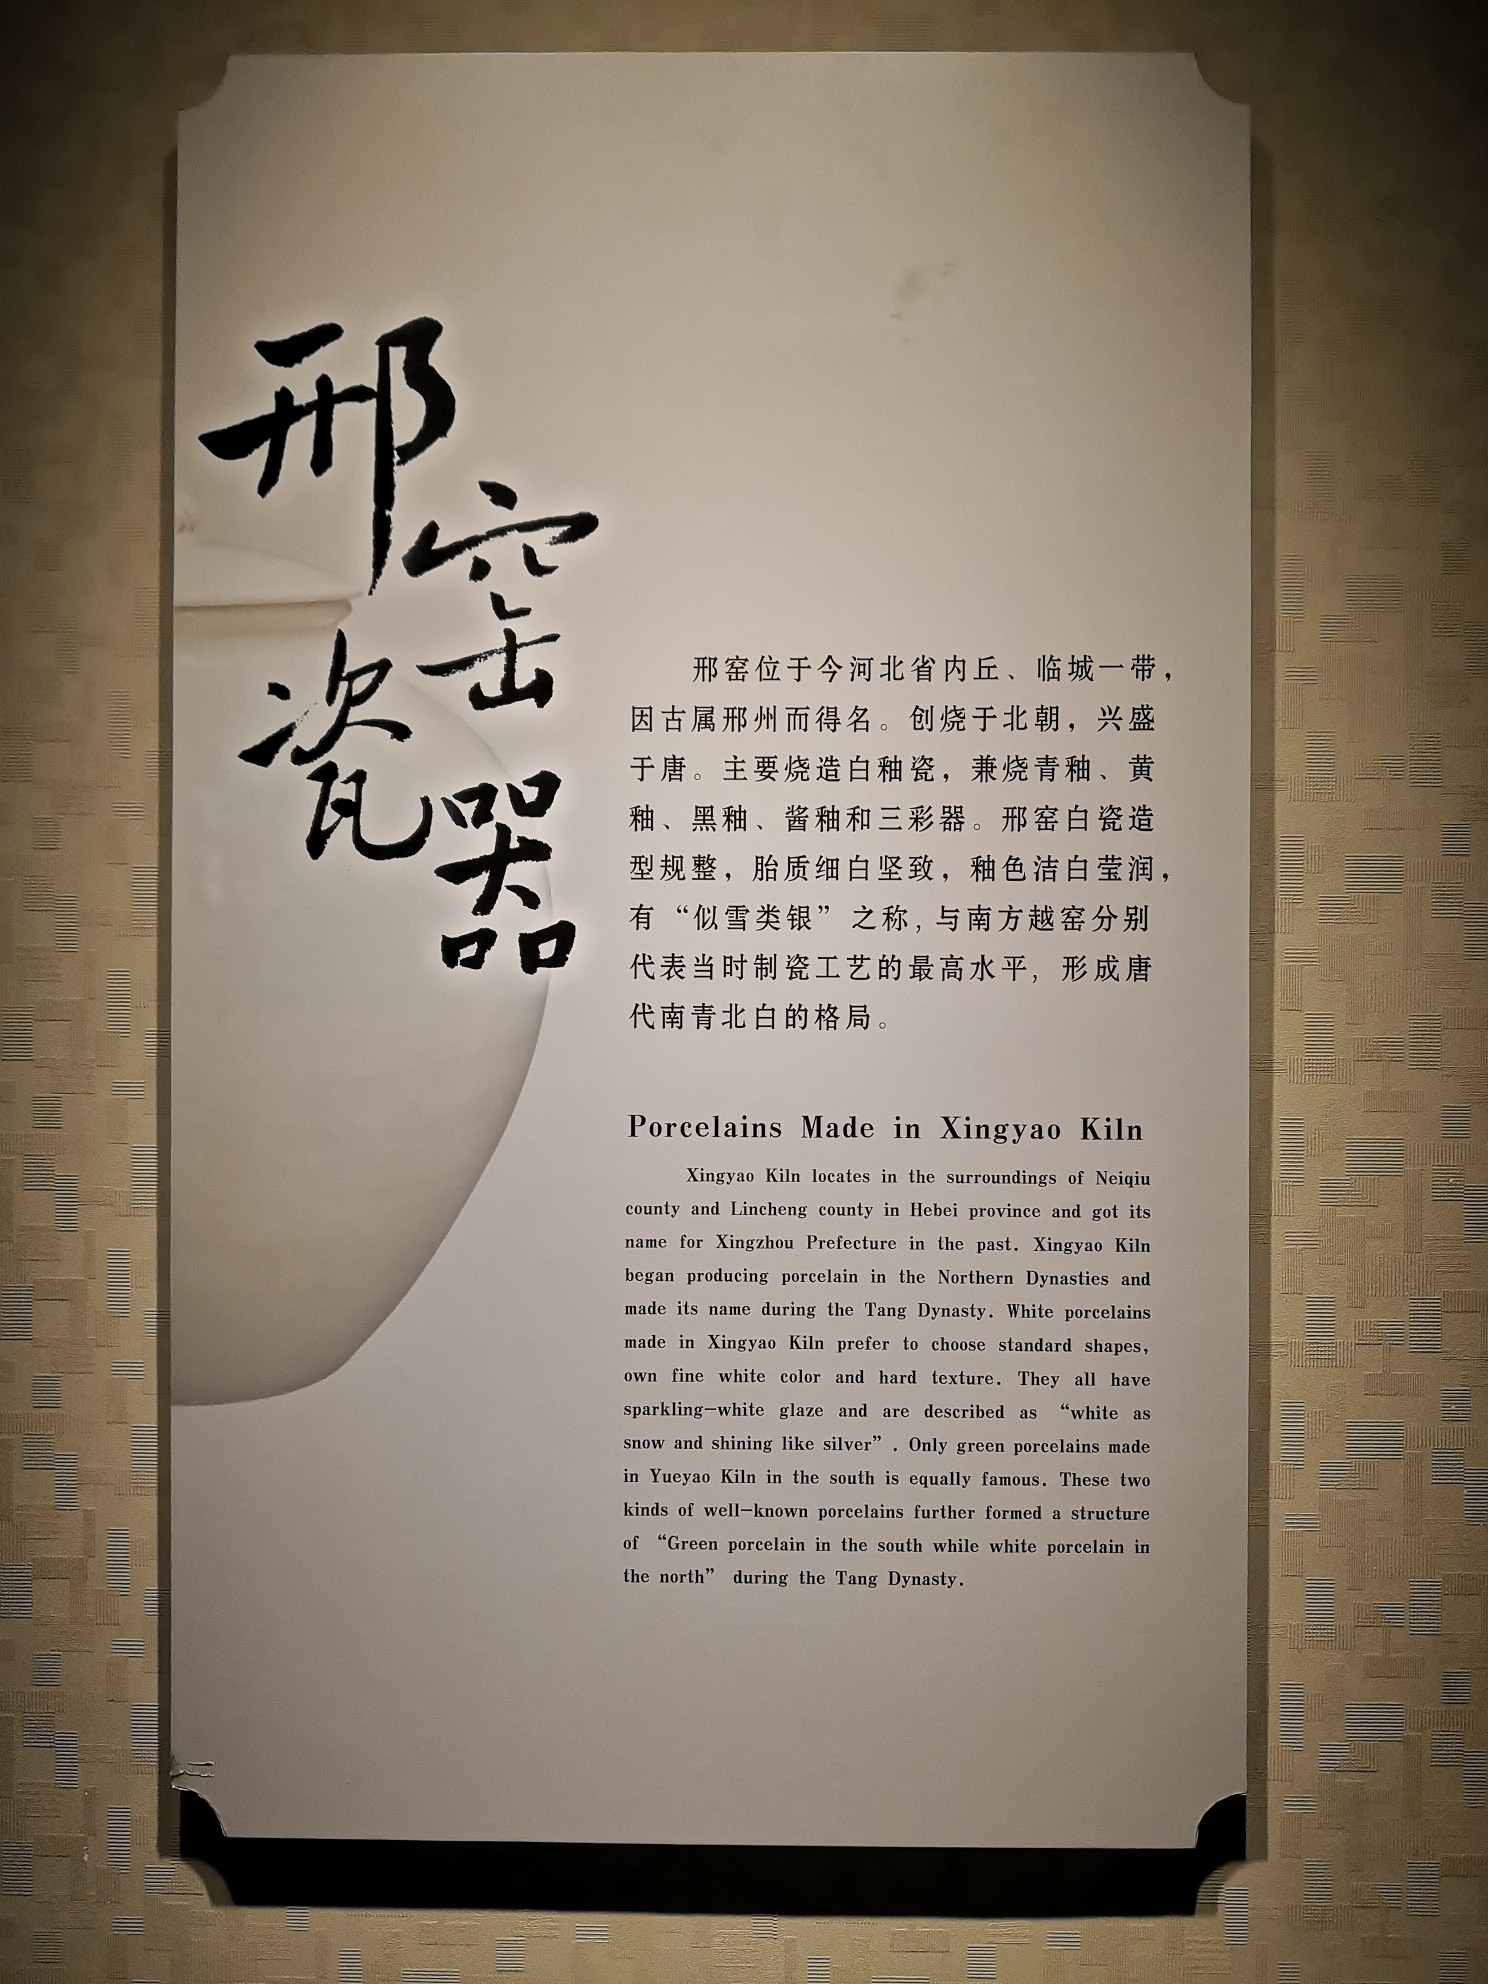 邢窑
瓷器
邢窑位于今河北省内丘、临城一带，
因古属邢州而得名。创烧于北朝，兴盛
于唐。主要烧造白釉瓷，兼烧青釉、黄
釉、黑釉、酱釉和三彩器。邢窑白瓷造
型规整，胎质细白坚致，釉色洁白莹润，
有“似雪类银”之称，与南方越窑分别
代表当时制瓷工艺的最高水平，形成唐
代南青北白的格局。
Porcelains Made in Xingyao Kiln
Xingyao Kiln locates in the surroundings of Neiqiu
county and Lincheng county in Hebei province and got its
name for Xingzhou Prefecture in the past. Xingyao Kiln
began producing porcelain in the Northern Dynasties and
made its name during the Tang Dynasty. White porcelains
made in Xingyao Kiln prefer to choose standard shapes,
own fine white color and hard texture. They all have
sparkling-white glaze and are described as “white as
snow and shining like silver”. Only green porcelains made
in Yueyao Kiln in the south is equally famous. These two
kinds of well-known porcelains further formed a structure
of “Green porcelain in the south while white porcelain in
the north” during the Tang Dynasty.